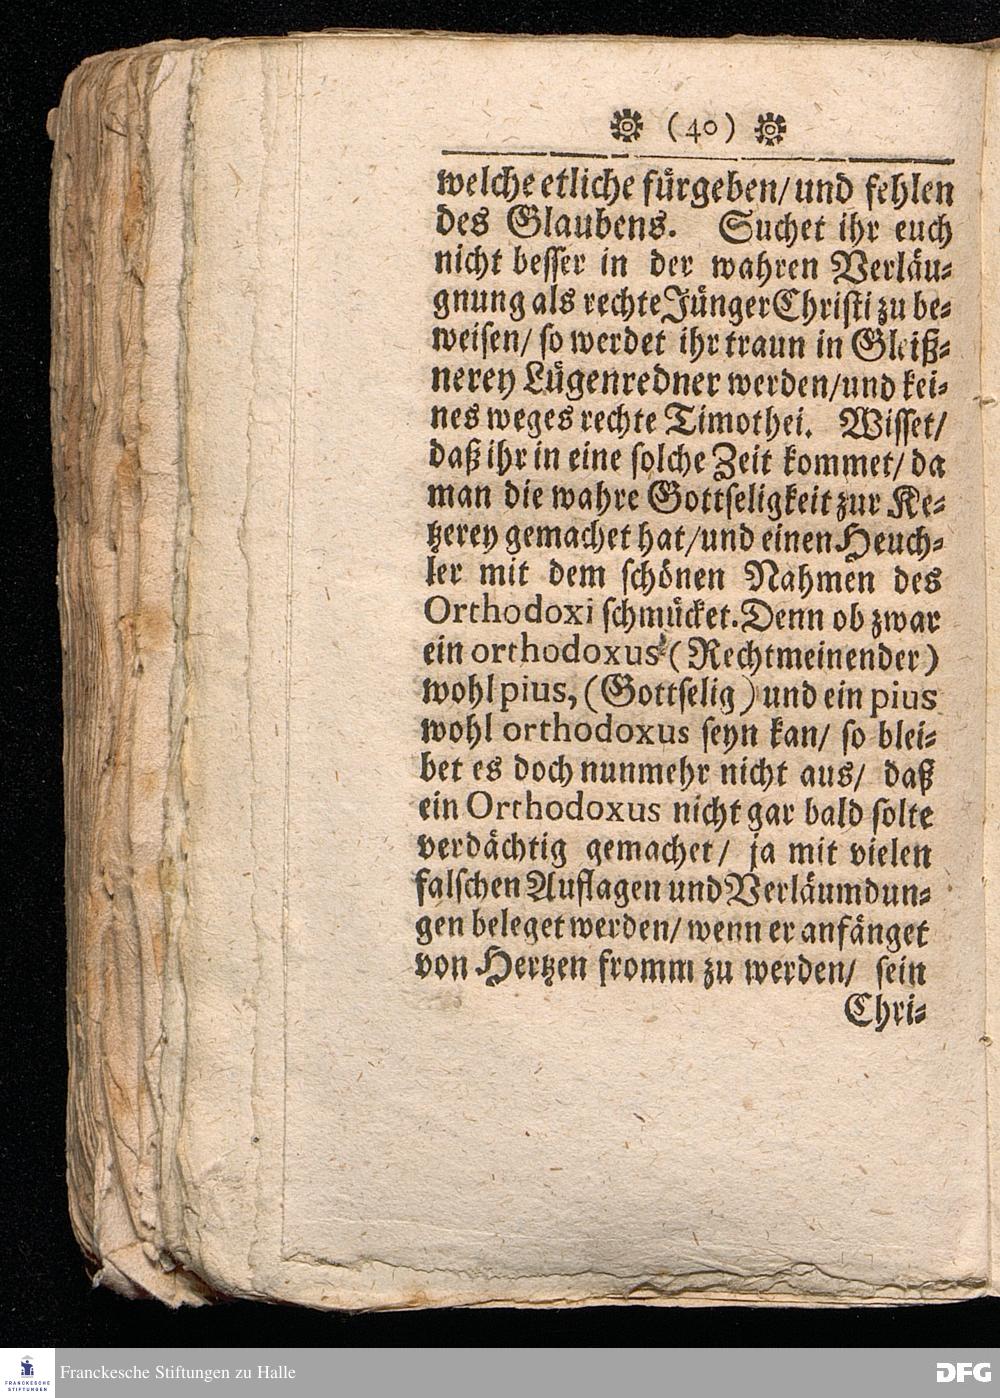 (40)
welche etliche fürgeben/ und fehlen
des Glaubens. Suchet ihr euch
nicht besser in der wahren Verläu-
gnung als rechte Jünger Christi zu be-
weisen/ so werdet ihr traun in Gleiß-
nerey Lügenredner werden/ und kei-
nes weges rechte Timothei. Wisset/
daß ihr in eine solche Zeit kommet/ da
man die wahre Gottseligkeit zur Ke-
tzerey gemachet hat/ und einen Heuch-
ler mit dem schönen Nahmen des
Orthodoxi schmücket. Denn ob zwar
ein orthodoxus (Rechtmeinender)
wohl pius, (Gottselig) und ein pius
wohl orthodoxus seyn kan/ so blei-
bet es doch nunmehr nicht aus/ daß
ein Orthodoxus nicht gar bald solte
verdächtig gemachet/ ja mit vielen
falschen Auflagen und Verläumdun-
gen beleget werden/ wenn er anfänget
von Hertzen fromm zu werden/ sein
Chri-
FRANCKESCHE
STIFTUNGEN
Franckesche Stiftungen zu Halle
DFG